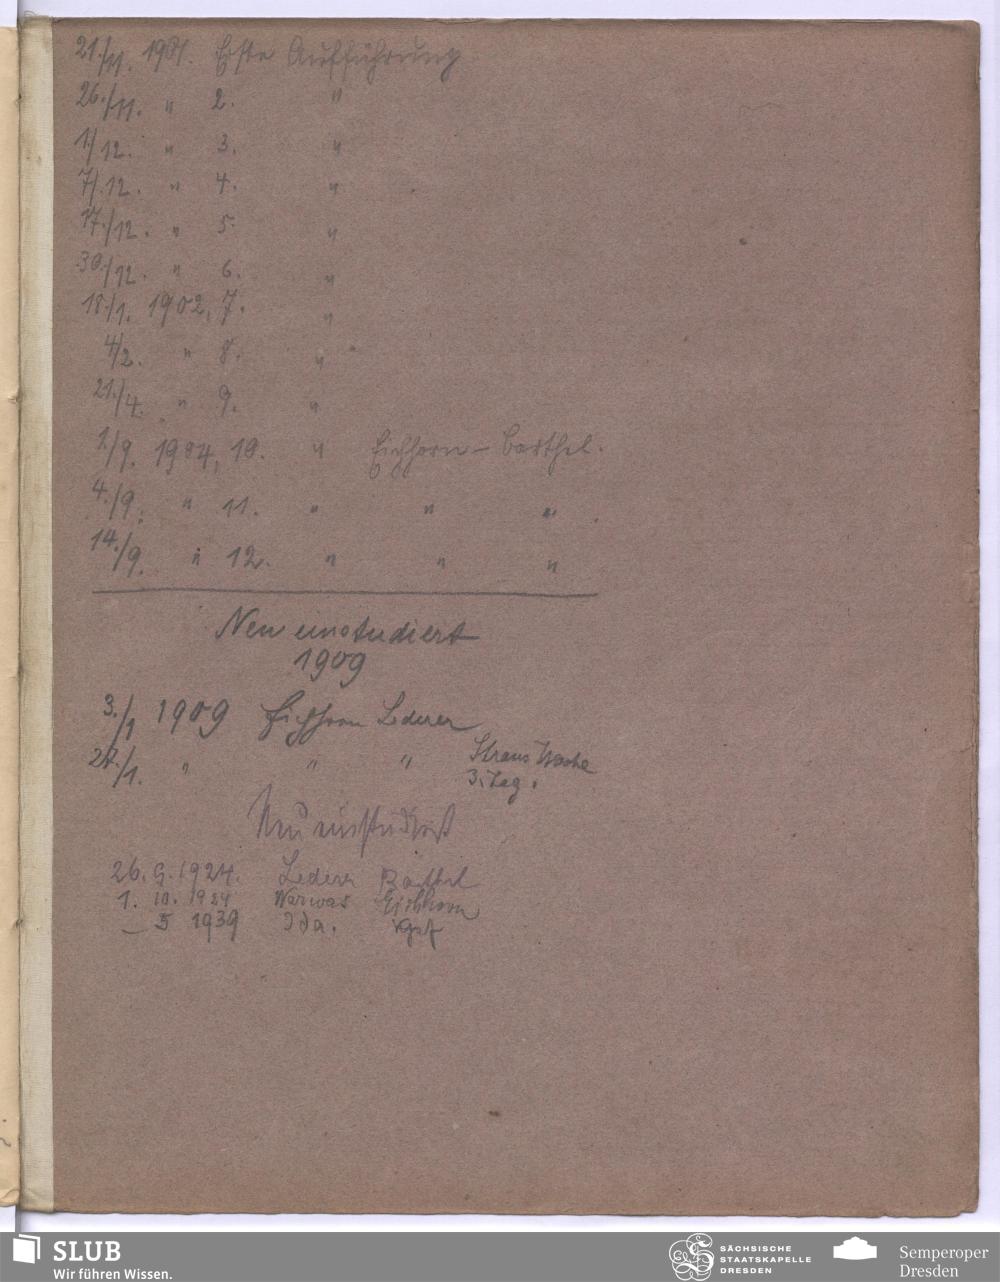 21./11. 1901. Erste Aufführung
26./11. " 2. "
1./12. " 3. "
7./12. " 4. "
17./12. " 5. "
30./12. " 6. "
18./1. 1902, 7. "
4/2. " 8. "
21./4. " 9. "
1/9. 1904, 10. " Eichhorn - Barthel.
4./9. " 11. " " "
14./9. " 12. " " "
Neu einstudiert
1909
3./1 1909 Eichhorn Lederer
27./1. " " " Straus Woche
3. Tag.
Neu einstudiert
26. 9. 1924. Lederer Barthel
1. 10. 1924 Warwas Eichhorn
_ 5 1939 Ida.
SLUB
Wir führen Wissen.
SÄCHSISCHE
STAATSKAPELLE
DRESDEN
Semperoper
Dresden